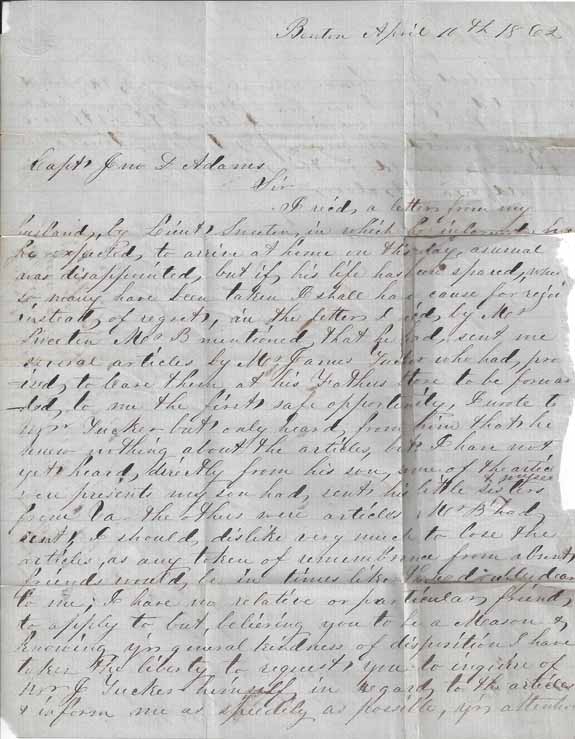 Benton April 10th 1862
Capt Jno D Adams
Sir
I recd, a letter from my
husband, by Lieut, Sweeten, in which he informed me
he expected, to arrive at home on this day, as usual
was disappointed, but if, his life has been spared, when
so many have been taken I shall have cause for rejoi
instead, of regret, in the letter I recd, by Mr
Sweeten Mr B mentioned, that he had, sent me
several articles by Mr James Tucker who had, pro
ised, to leave them at his Fathers store to be forwa
-ded, to me the first, safe opportunity, I wrote to
Mr Tucker but, only heard, from him that he
knew nothing about the articles, but I have not
yet, heard, directly from his son, some of the artic
were presents my son had, sent, his little sisters
from Va. the others were articles Mr B had,
sent, I should, dislike very much to lose the
articles, as any token of remembrance from absent,
friends would, be in times like these doubly dear
to me; I have no relative or particular, friend,
to apply to but, believing you to be a Mason &
knowing yrs general kindness of disposition I have
taken the liberty to request, you to inquire of
Mr J Tucker himself, in regard, to the articles
& inform me as speedily as possible, yrs attention